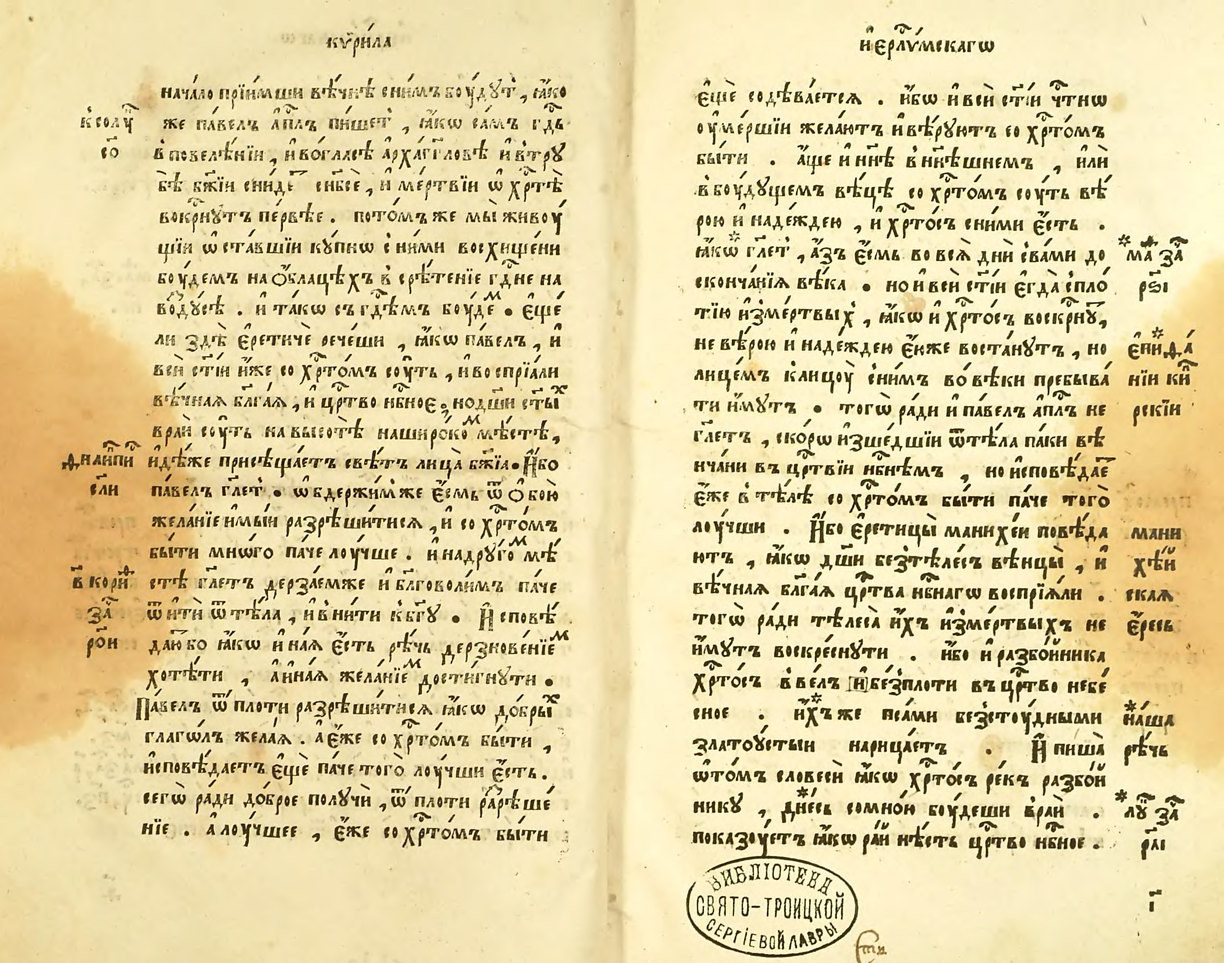 кѷри́ла
нача́ло прїи́мши вѣ́чнѣ сни́мъ боу́дꙋт̾, ꙗ҆́ко
к солꙋ̑
же па́велъ а҆п҃лъ пи́шет̾, ꙗ҆́кѡ са́мъ гд҇ь
со
в повелѣ́нїи, и҆ во гла́сѣ а҆рха́гг҃ловѣ и҆ в трꙋ
бѣ̀ бж҃їи сни́де с нб҃сѐ, и҆ ме́ртвїи ѡ҆ хр҇тѣ̀
воскр҇нꙋтъ пе́рвѣе. пото́мъ же мы̀ живоу́
щїи ѡ҆ста́вшїи кꙋ́пнѡ с ни́ми восхище́ни
боу́демъ на ѻ҆́блацѣхъ в срѣ́тенїе гд҇не на
во́здꙋсѣ. и҆ та́кѡ съ гд҇емъ боу́демъ. є҆ще́
ли здѣ̀ є҆рети́че рече́ши, ꙗ҆́кѡ па́велъ, и҆
всѝ ст҃їи и҆́же со хр҇то́мъ соу́ть, и҆ воспрїа́ли
вѣ́чнаѧ бл҃га́ѧ, и҆ цр҇тво нб҇ное, но дш҃и ст҃ы́х
в раѝ соу́ть на высотѣ̀ на широ́ком мѣ́стѣ,
филипи
и҆дѣ́же присѣща́етъ свѣ́тъ лица̀ бж҃їа. И҆́бо
сли
па́велъ гл҃ет̾. ѡ҆бдержи́м же є҆́смь ѿ ѻ҆бою̀
жела́нїе и҆мы́и разрѣши́тисѧ, и҆ со хр҇то́мъ
бы́ти мно́го па́че лоу́чше. и҆ на дрꙋго́м мѣ́
в кори́
стѣ гл҃етъ дерза́емже и҆ бл҃говоли́мъ па́че
за҇
ѿи́ти ѿ тѣ́ла, и҆ вни́ти к бг҃ꙋ. И҆сповѣ́
рои
даю бо ꙗ҆́кѡ и҆на́ѧ є҆́сть рѣ́чь дерзнове́нїем
хотѣ́ти, а҆ и҆на́ѧ жела́нїем дости́гнꙋти.
Па́велъ ѿ пло́ти разрѣши́тисѧ ꙗ҆́кѡ до́брых
глаго́лъ жела́ѧ. а҆ є҆́же со хр҇то́мъ бы́ти,
и҆сповѣ́даетъ є҆ще́ па́че того̀ лоу́чши є҆́сть.
сегѡ̀ ра́ди до́брое получѝ, ѿ пло́ти ра́рѣше́
нїе. а҆ лоу́чшее, є҆́же со хр҇то́мъ бы́ти
и҆єр҇лѵ́мскагѡ
є҆ще́ содѣва́етсѧ. и҆́бѡ и҆ всѝ ст҃їи чт҇нѡ
оу҆ме́ршїи жела́ютъ и҆ вѣ́руютъ со хр҇то́мъ
бы́ти. а҆́ще и҆ нн҃ѣ в нн҃ѣшнемъ, и҆лѝ
в боу́дꙋщемъ вѣ́цѣ со хр҇то́мъ соу́ть вѣ́
рою и҆ наде́ждею, и҆ хр҇то́съ с ни́ми є҆́сть.
ꙗ҆́кѡ гл҃ет̾, а҆́зъ є҆́смь во всѧ̀ дни̑ с ва́ми до
* мѳ҇ за҇
сконча́нїѧ вѣ́ка. но и҆ всѝ ст҃їи є҆гда̀ с пло
рѕ҃і
тїю и҆з̾ме́ртвых, ꙗ҆́кѡ и҆ хр҇то́съ воскр҇нꙋ,
не вѣ́рою и҆ наде́ждею є҆́юже воста́нꙋтъ, но
є҆пифа́
лице́мъ к лицоу́ с ни́мъ во вѣ́ки пребыва́
нїи ки́
ти и҆́мꙋтъ. тогѡ̀ ра́ди и҆ па́велъ а҆п҃лъ не
рскїи
гл҃етъ, ско́рѡ и҆зше́дшїи ѿ тѣ́ла па́ки вѣ
нча́ни въ цр҇твїи нб҇нѣмъ, но и҆сповѣ́дае
є҆́же в тѣ́лѣ со хр҇то́мъ бы́ти па́че того̀
лоу́чши. И҆́бо є҆ретицы̀ манихе́и повѣ́да
мани
ютъ, ꙗ҆́кѡ дш҃и без̾тѣле́съ вѣнцы̀, и҆
хѣ́и
вѣ́чнаѧ бл҃га́ѧ цр҇тва нб҇нагѡ воспрїѧ́ли.
скаѧ
тогѡ̀ ра́ди тѣлеса̀ и҆́хъ и҆з̾ме́ртвыхъ не
є҆́ресь
и҆́мꙋтъ воскре́снꙋти. и҆́бо и҆ разбо́йника
хр҇то́съ в ве́лъ [и҆] без̾пло́ти въ цр҇тво небе́
сное. и҆́хъже пса́ми безстоу́дными
на́ша
златоу́стыи нарица́етъ. И҆ пиша̀
рѣ́чь
ѡ҆ то́мъ словесѝ ꙗ҆́кѡ хр҇то́съ ре́къ разбо́й
никꙋ, дне́сь со мно́ю боу́деши в раѝ.
* лꙋ҇ за҇
показоу́етъ ꙗ҆́кѡ ра́й нѣ́сть цр҇тво нб҇ное.
рл҃і
і҃
БИБЛІОТЕКА
СВЯТО-ТРОИЦКОЙ
СЕРГІЕВОЙ ЛАВРЫ